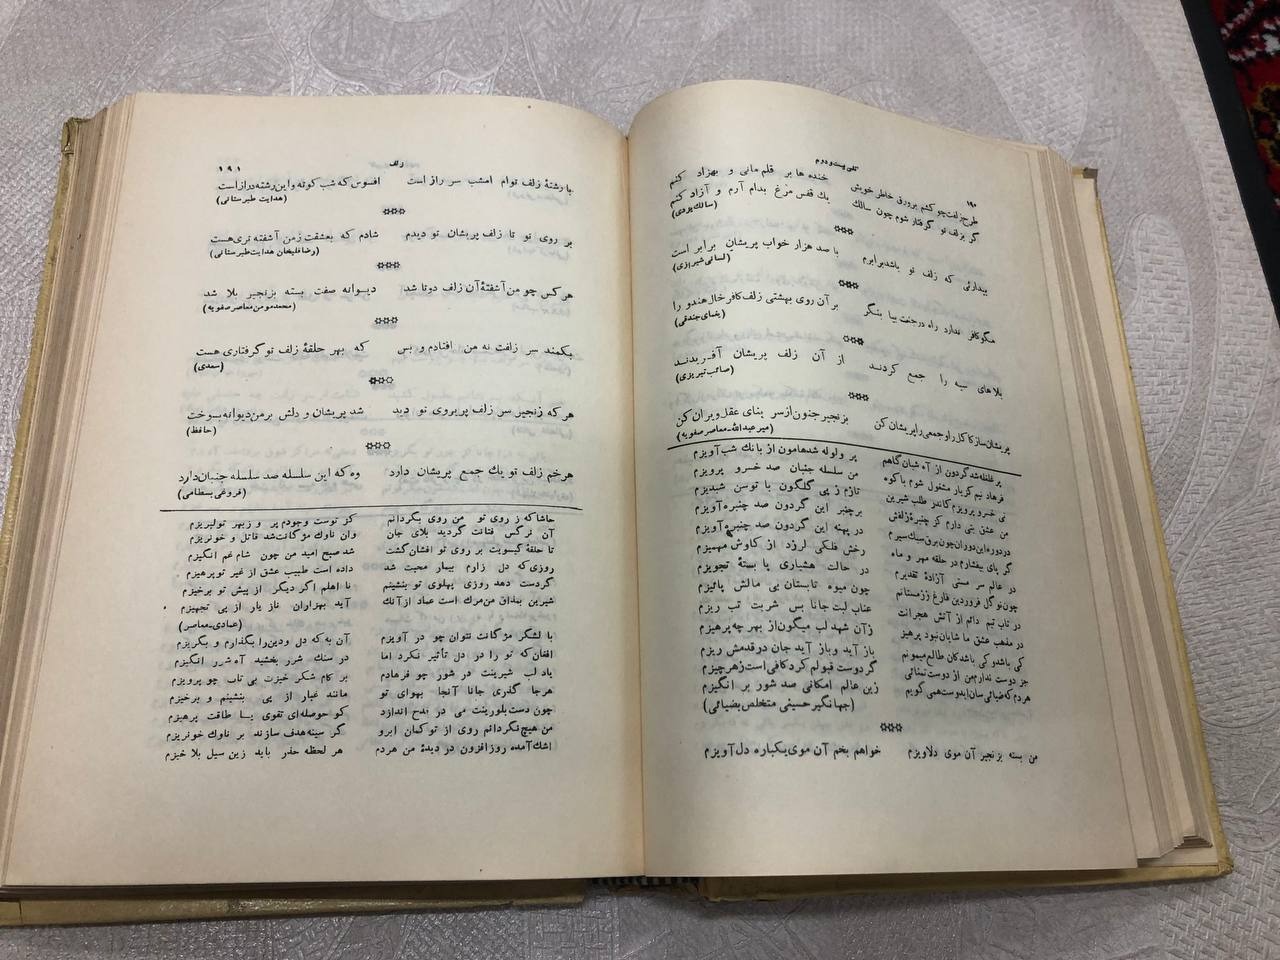 ۱۹۰
گلی بیست و دوم
طرح زلفت چو کشم بر ورق خاطر خویش خنده ها بر قلم مانی و بهزاد کنم
گر بزلف تو گرفتار شوم چون سالك يك قفس مرغ بدام آرم و آزاد کنم
(سالك یزدی)
بیدارئی که زلف تو باشد برابرم با صد هزار خواب پریشان برابر است
(لسانی شیرازی)
مگو کافر ندارد راه در جنت بیا بنگر بر آن روی بهشتی زلف کافر خال هندو را
(یغمای جندقی)
بلاهای سیه را جمع کردند از آن زلف پریشان آفریدند
(صائب تبریزی)
پریشان ساز کاکل را و جمعی را پریشان کن بزنجیر جنون از سر بنای عقل ویران کن
(میر عبدالله - معاصر صفویه)
پر غلغله شد گردون از آه شبان گاهم پر ولوله شد هامون از بانك شب آویزم
فرهاد نیم کر یار مشغول شوم با کوه من سلسله جنبان صد خسرو پرویزم
نی خسرو پرویزم کاندر طلب شیرین تازم ز پی گلگون با توسن شبدیزم
من عشق بتی دارم کر چنبرۀ زلفش برچنبر این گردون صد چنبره آویزم
در دوره این دوران چون برق سبك سیرم در پهنه این گردون صد چنبره آویزم
گر پای بیفشارم در حلقه مهر و ماه رخش فلکی لرزد از کاوش مهمیزم
در عالم سر مستی آزادۀ تقدیرم در حالت هشیاری پا بستۀ تجویزم
چون نو گل فروردین فارغ ز زمستانم چون میوه تابستان بی مالش پائیزم
در تاب تبم دائم از آتش هجرانت عناب لبت جانا بس شربت تب ریزم
در مذهب عشق ما شایان نبود پرهیز زآن شهد لب میگون از بهر چه پرهیزم
کی باشد و کی باشد کان طالع میمونم باز آید و باز آید جان در قدمش ریزم
جز دوست ندارم من از دوست تمنائی گر دوست قبولم کرد کافی است ز هر چیزم
هردم که ضیائی سان ایدوست همی گویم زین عالم امکانی صد شور بر انگیزم
(جهانگیر حسینی متخلص بضیائی)
من بسته بزنجیر آن موی دلاویزم خواهم بخم آن موی یکباره دل آویزم
زلف
۱۹۱
با رشتۀ زلف توام امشب سر راز است افسوس که شب کوته و این رشته دراز است
(هدایت طبرستانی)
بر روی تو تا زلف پریشان تو دیدم شادم که بعشقت ز من آشفته تری هست
(رضاقلیخان هدایت طبرستانی)
هر کس چو من آشفتۀ آن زلف دوتا شد دیوانه صفت بسته بزنجیر بلا شد
(محمد مومن معاصر صفویه)
بکمند سر زلفت نه من افتادم و بس که بهر حلقۀ زلف تو گرفتاری هست
(سعدی)
هر که زنجیر سر زلف پریروی تو دید شد پریشان و دلش بر من دیوانه بسوخت
(حافظ)
هر خم زلف تو يك جمع پریشان دارد وه که این سلسله صد سلسله جنبان دارد
(فروغی بسطامی)
حاشا که ز روی تو من روی بگردانم کز توست وجودم پر و ز بهر تو لبریزم
آن نرگس فتانت گردید بلای جان وان ناوك مژگانت شد قاتل و خونریزم
تا حلقۀ گیسویت بر روی تو افشان گشت شد صبح امید من چون شام غم انگیزم
روزی که دل زارم بیمار محبت شد داده است طبیب عشق از غیر تو پرهیزم
گر دست دهد روزی پهلوی تو بنشینم نا اهلم اگر دیگر از پیش تو برخیزم
شیرین بمذاق من مرك است عماد از آنك آید بهزاران ناز یار از پی تجهیزم
(عمادی - معاصر)
با لشکر مژگانت نتوان چو در آویزم آن به که دل و دین را بگذارم و بگریزم
افغان که تو را در دل تأثیر نکرد اما در سنك شرر بخشید آه شرر انگیزم
یاد لب شیرینت در شور چو فرهادم بر کام شکر خیزت بی تاب چو پرویزم
هر جا گذری جانا آنجا بهوای تو مانند غبار از پی بنشینم و برخیزم
چون دست بلورینت می در قدح اندازد کو حوصله ای تقوی یا طاقت پرهیزم
من هیچ نگردانم روی از تو کمان ابرو گر سینه هدف سازند بر ناوك خونریزم
اشك آمده روز افزون در دیدۀ من هردم هر لحظه حذر باید زین سیل بلا خیزم